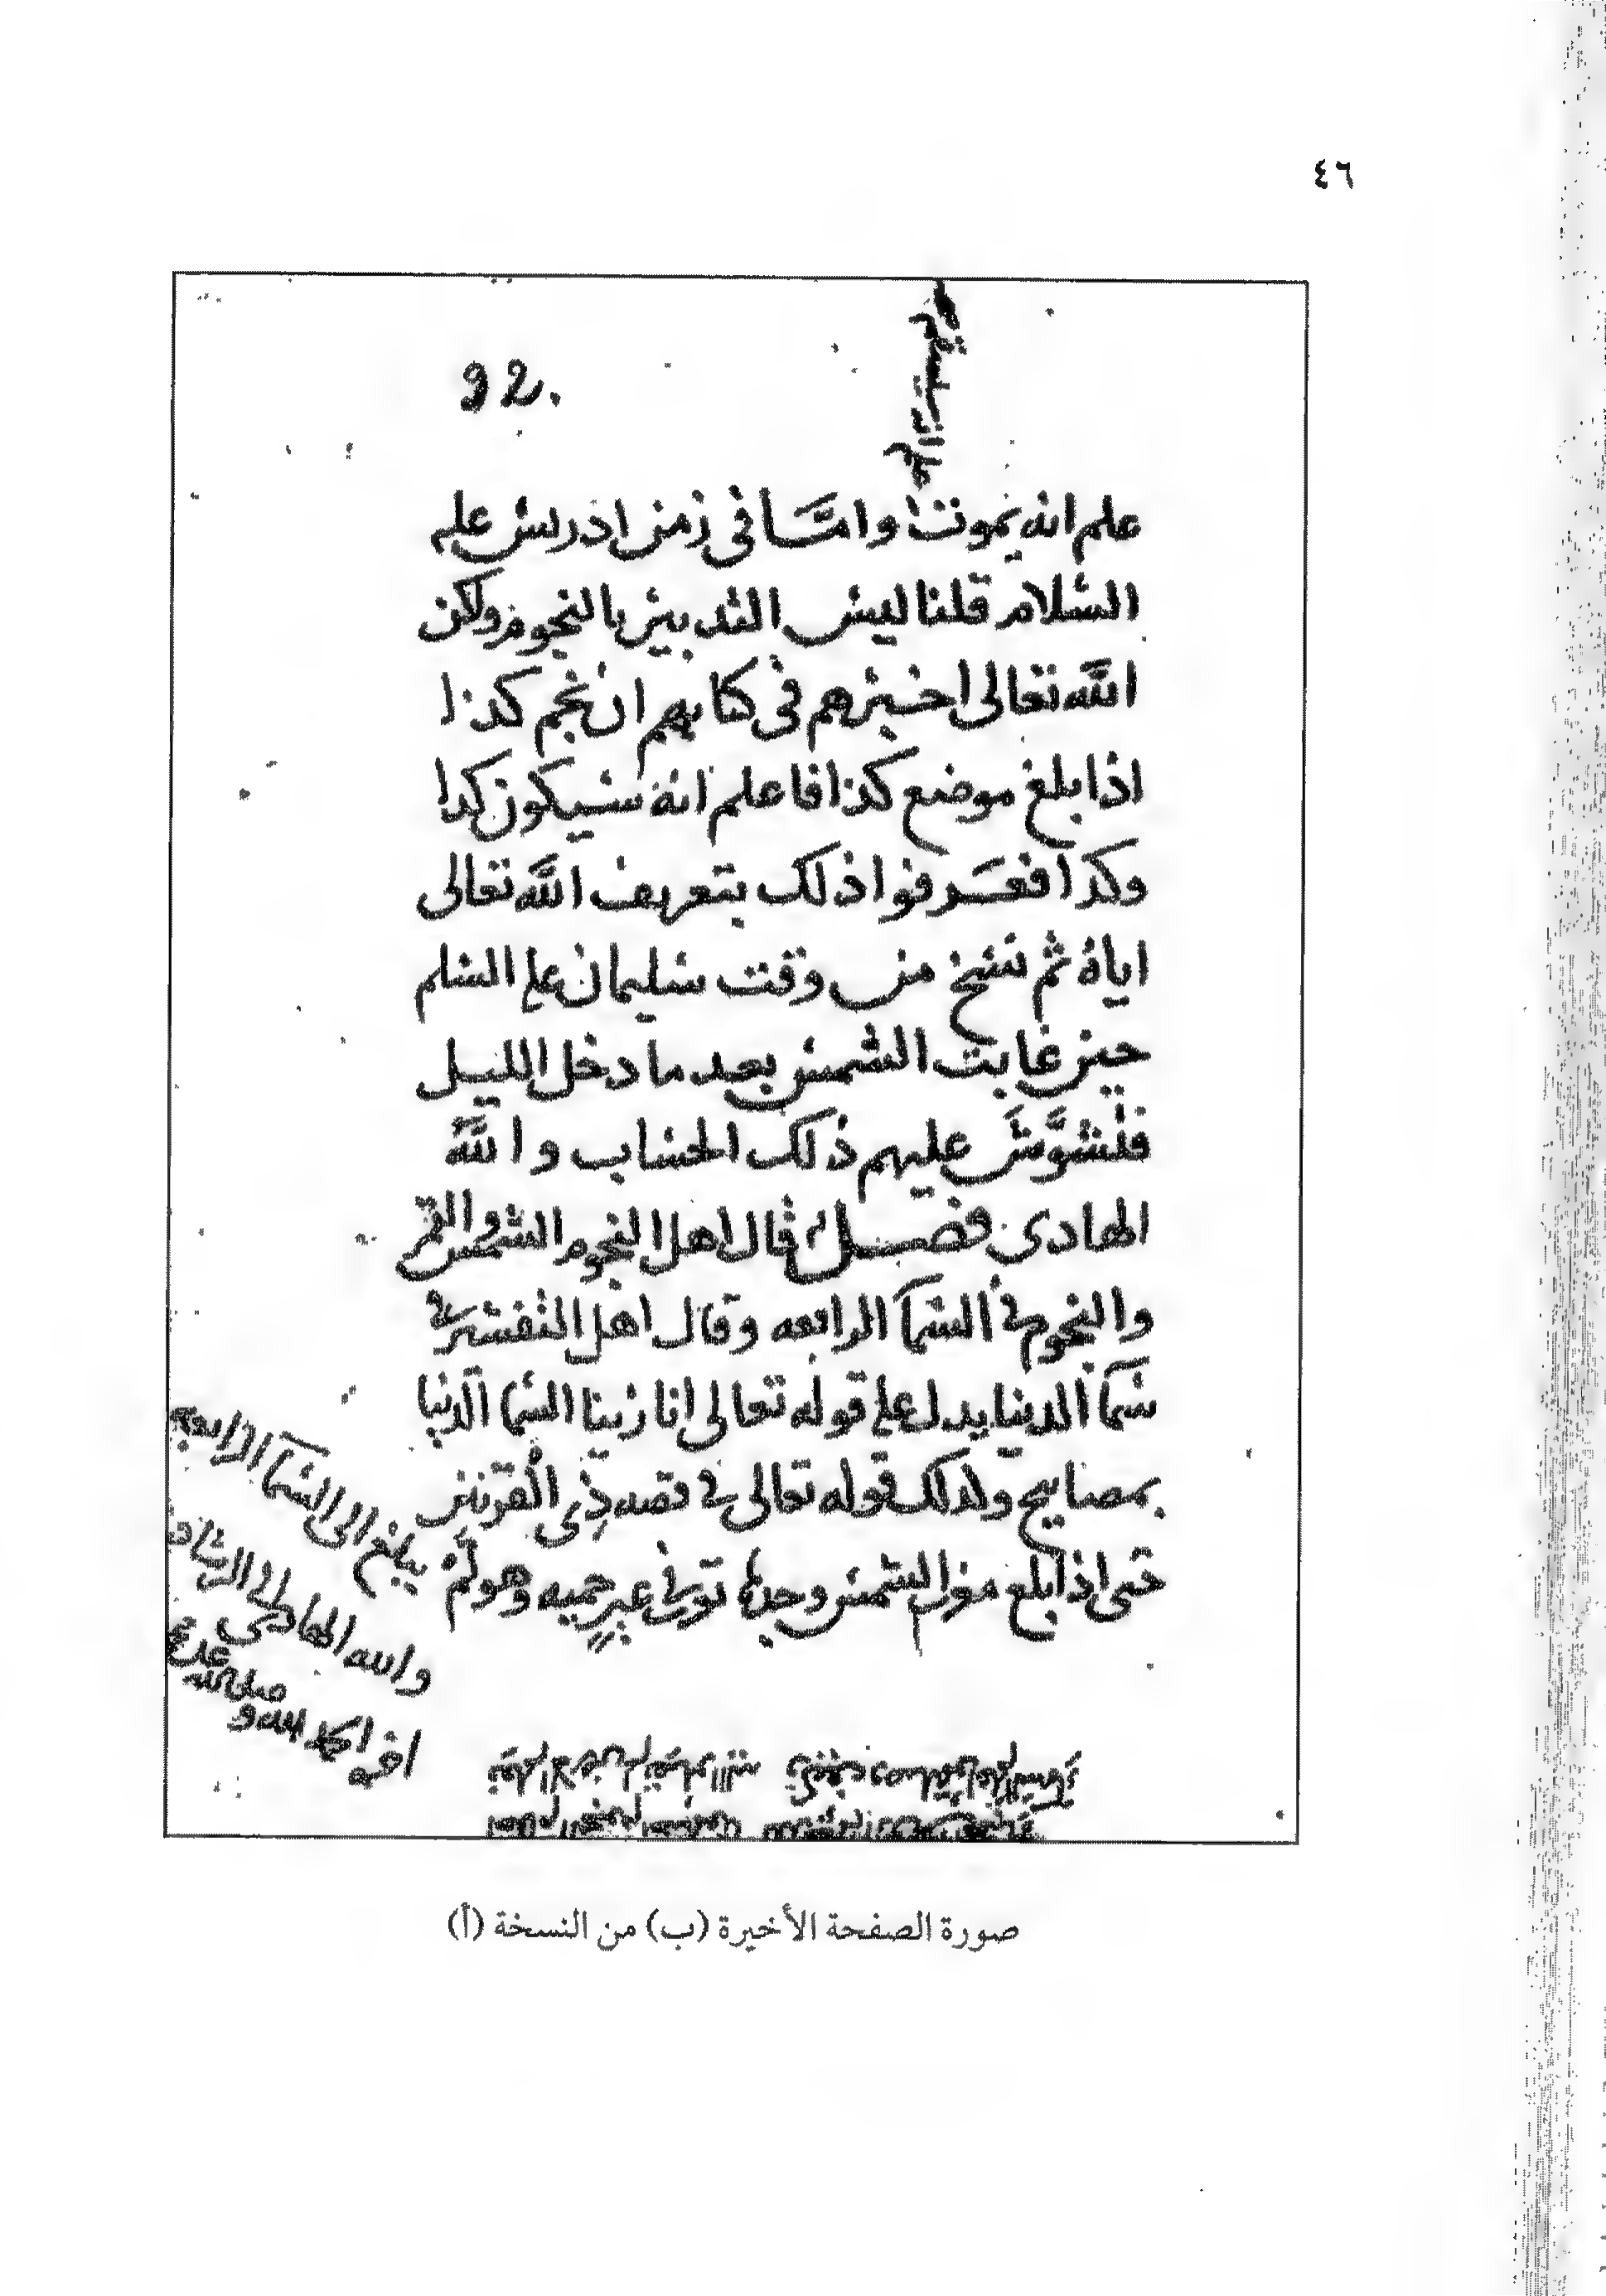 ٤٦
92.
علم انه يموت وامّا في زمن ادريس عليه
السلام قلنا ليس التدبير بالنجوم ولكن
الله تعالى اخبرهم في كتابهم ان نجم كذا
اذا بلغ موضع كذا فاعلم انه سيكون كدا
وكدا فعَرفوا ذلك بتعريف الله تعالى
اياه ثم نسخ من وقت سليمان علم السلم
حين غابت الشمس بعد ما دخل الليل
فتشوَّش عليهم ذلك الحساب والله
الهادى فصل قال اهل النجوم الشمس والقمر
والنجوم في السمآ الرابعه وقال اهل التفسير في
سمآ الدنيا يدل على قوله تعالى انا زينا السما الدنيا
بمصابيح ولذلك قوله تعالى في قصه ذِى القرنين
حتى اذا بلغ الشمس وجدها وهو لم
يبلغ الى السمآ الرابعه
والله الهادي الى الرشاد
صورة الصفحة الأخيرة (ب) من النسخة (أ)